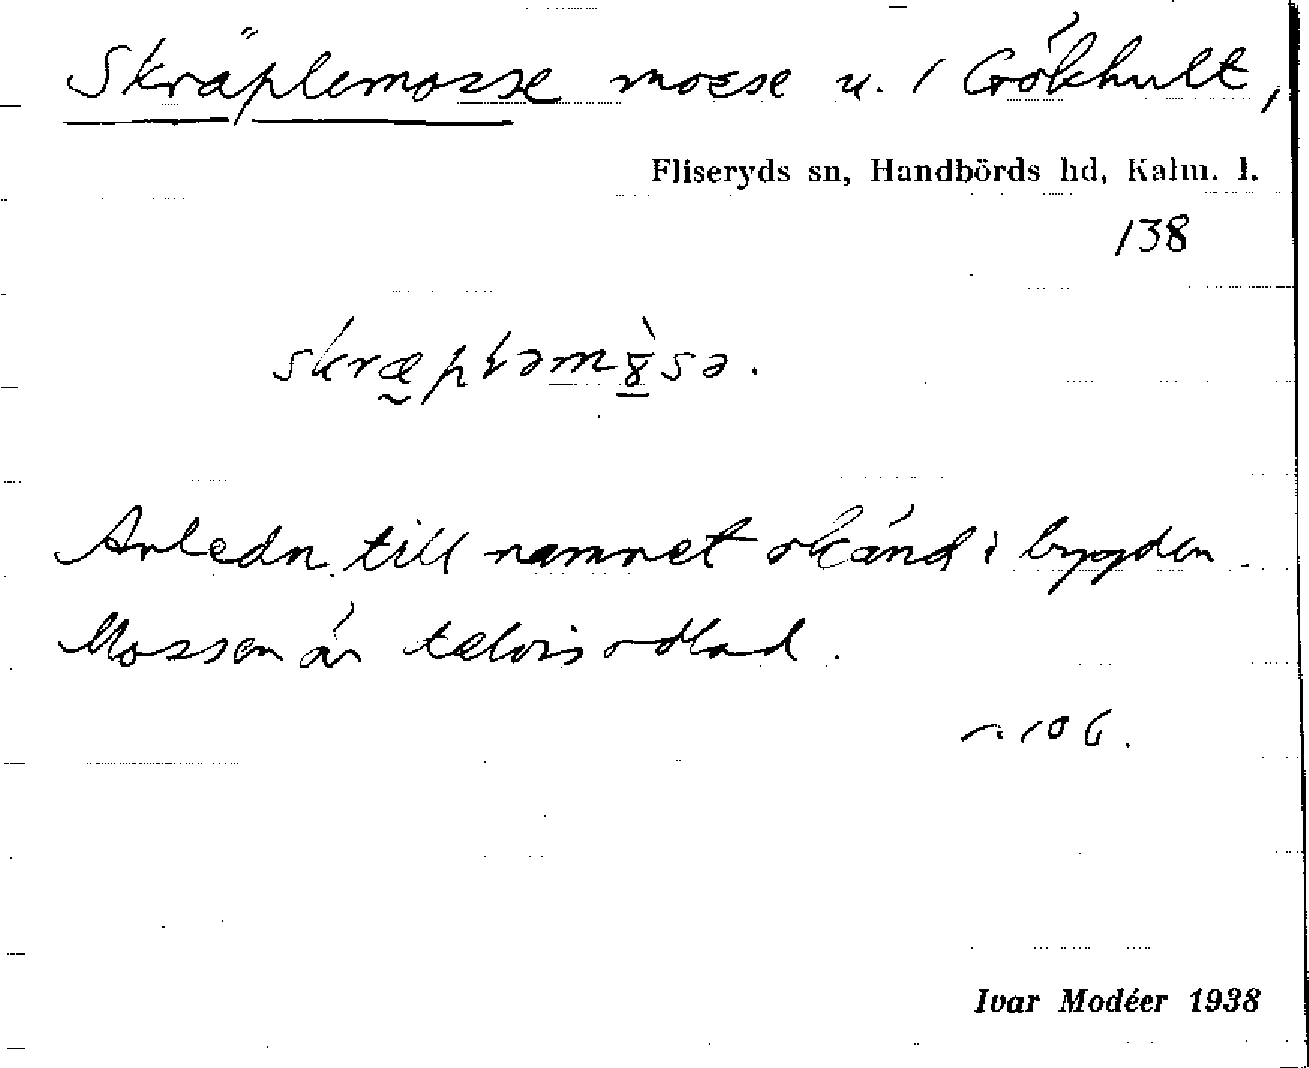 Skräplemosse mosse u. 1 Gökhult,
Fliseryds sn, Handbörds hd, Kalm. l.
138
skræpləm8̀sə.
Anledn. till namnet okänd i bygden.
Mossen är telvis odlad.
n. 106.
Ivar Modéer 1938